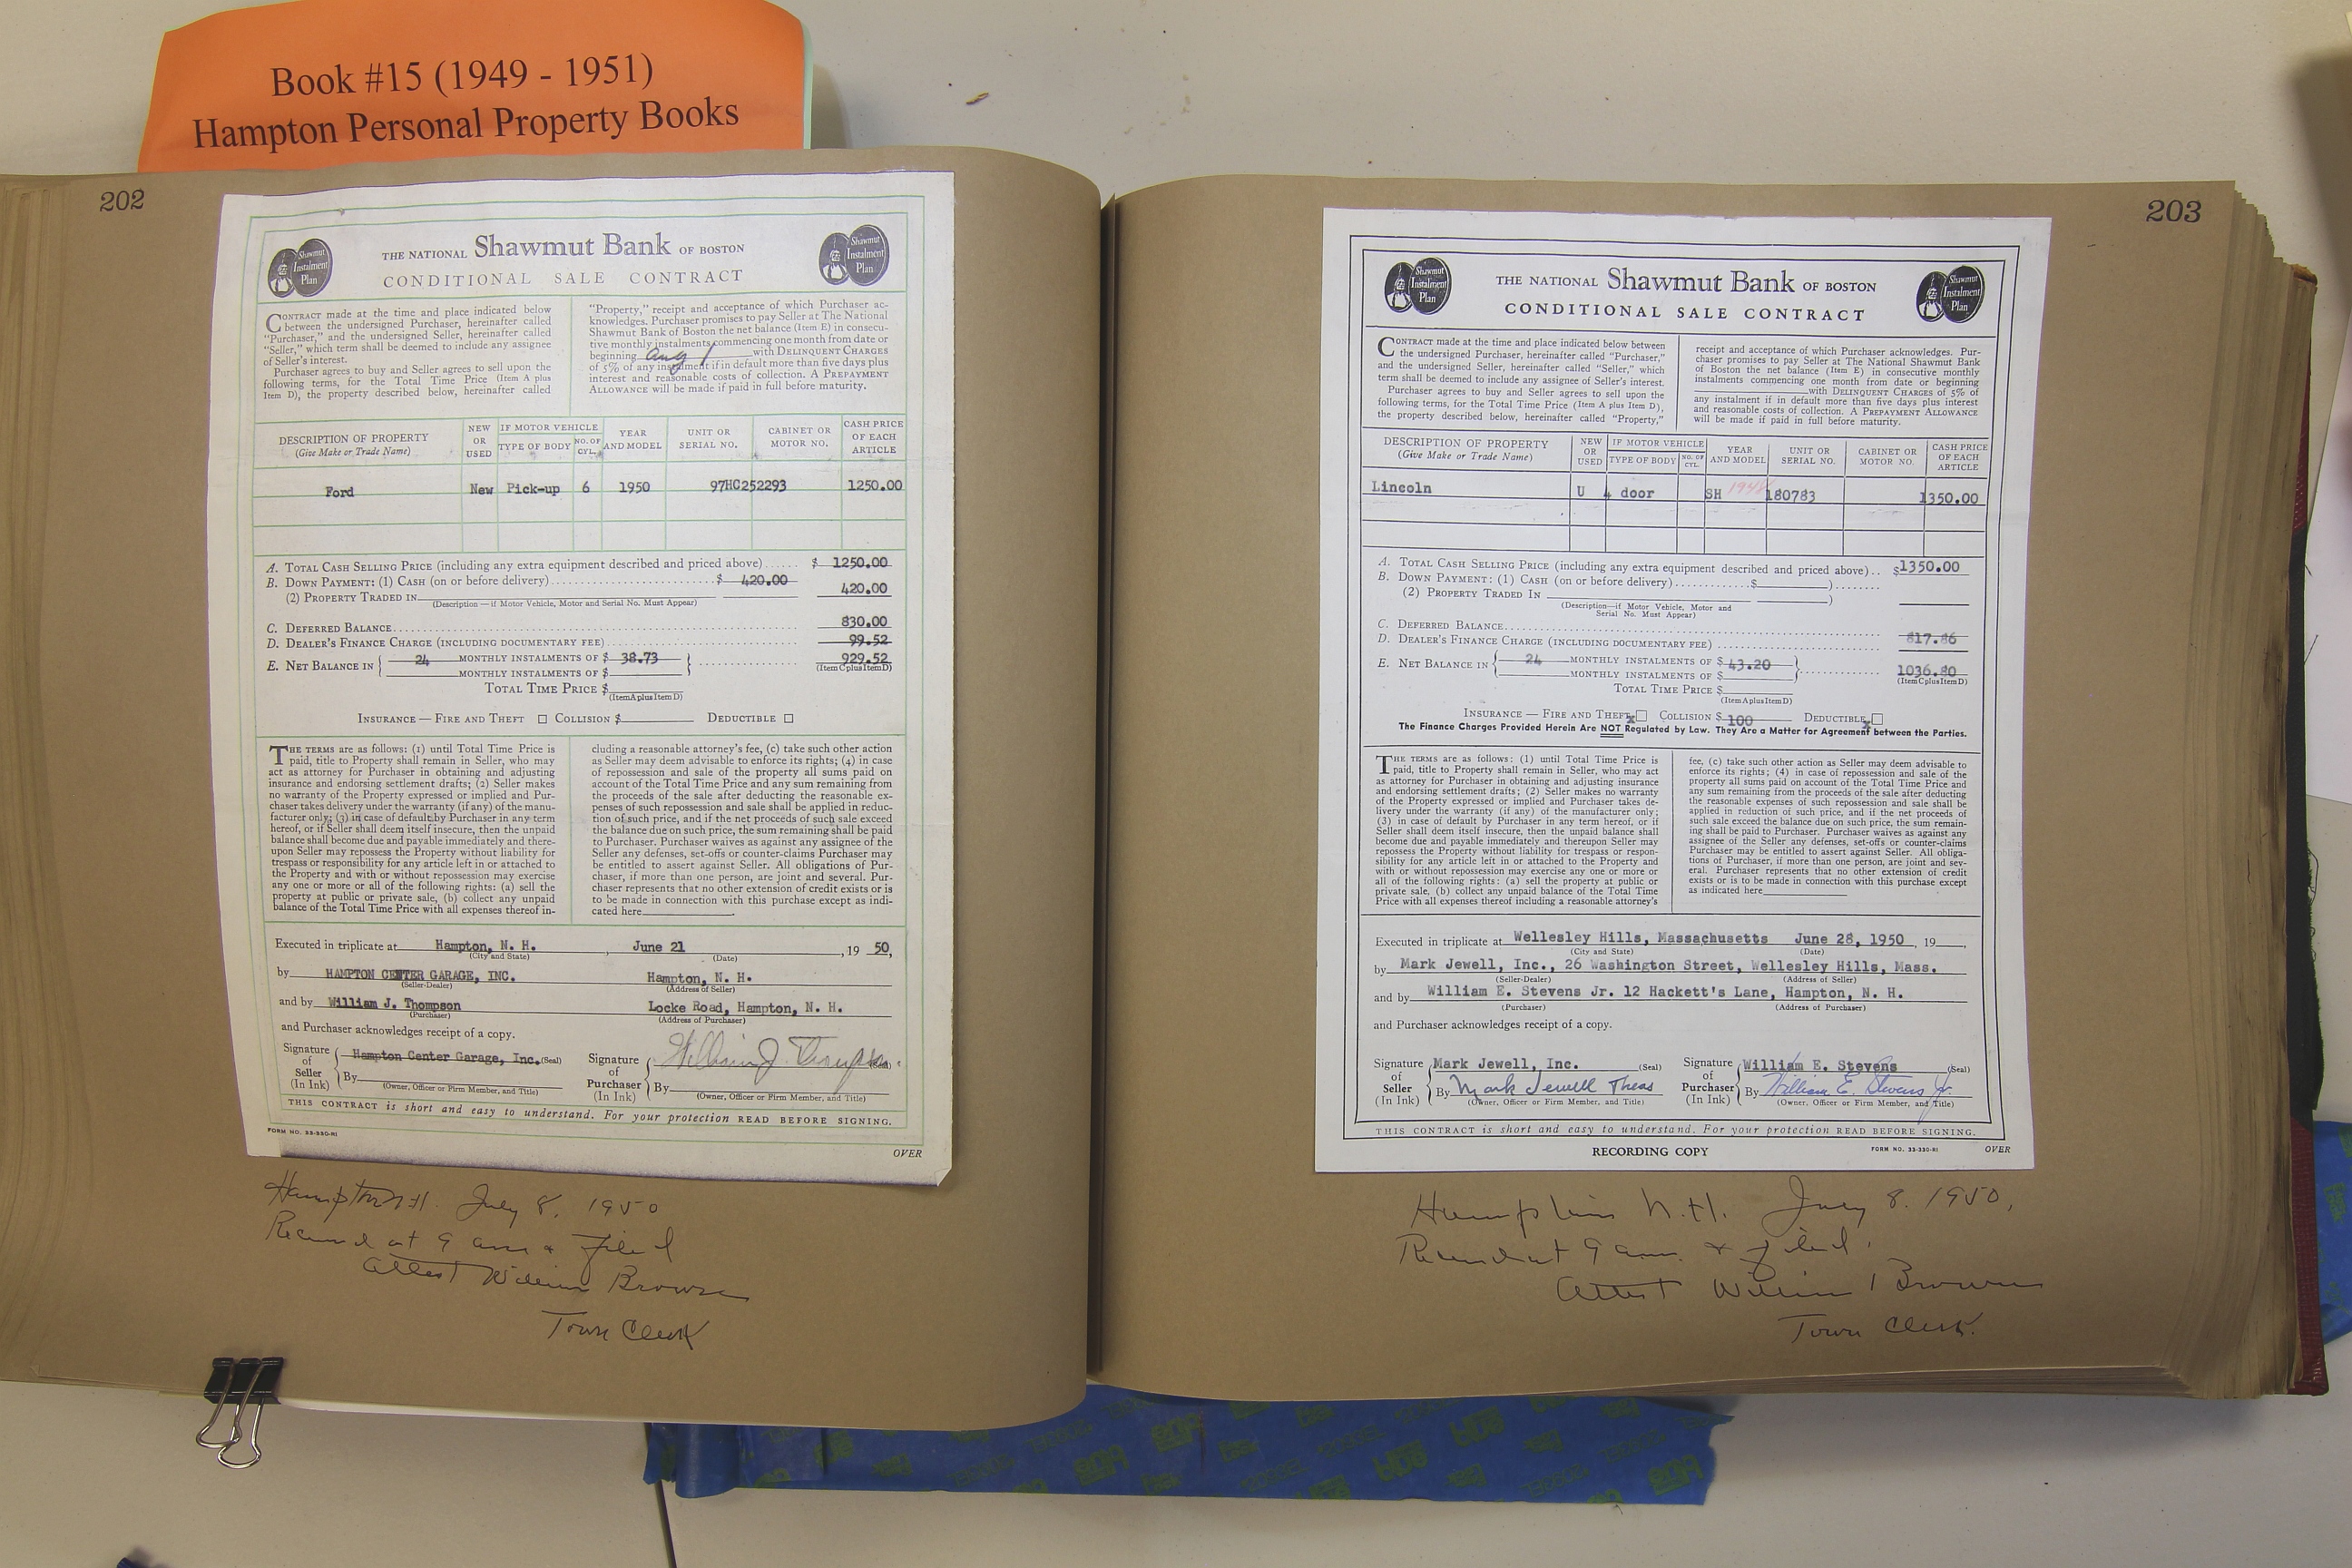 Book #15 (1949 - 1951)
Hampton Personal Property Books
202
Shawmut
Instalment
Plan
THE NATIONAL Shawmut Bank OF BOSTON
CONDITIONAL SALE CONTRACT
Shawmut
Instalment
Plan
CONTRACT made at the time and place indicated below
between the undersigned Purchaser, hereinafter called
"Purchaser," and the undersigned Seller, hereinafter called
"Seller," which term shall be deemed to include any assignee
of Seller's interest.
Purchaser agrees to buy and Seller agrees to sell upon the
following terms, for the Total Time Price (Item A plus
Item D), the property described below, hereinafter called
"Property," receipt and acceptance of which Purchaser ac-
knowledges. Purchaser promises to pay Seller at The National
Shawmut Bank of Boston the net balance (Item E) in consecu-
tive monthly instalments commencing one month from date or
beginning Aug 1 with DELINQUENT CHARGES
of 5% of any instalment if in default more than five days plus
interest and reasonable costs of collection. A PREPAYMENT
ALLOWANCE will be made if paid in full before maturity.
DESCRIPTION OF PROPERTY
(Give Make or Trade Name)
NEW
OR
USED
IF MOTOR VEHICLE
TYPE OF BODY
NO. OF
CYL.
YEAR
AND MODEL
UNIT OR
SERIAL NO.
CABINET OR
MOTOR NO.
CASH PRICE
OF EACH
ARTICLE
Ford New Pick-up 6 1950 97HC252293 1250.00
A. TOTAL CASH SELLING PRICE (including any extra equipment described and priced above)...... $ 1250.00
B. DOWN PAYMENT: (1) CASH (on or before delivery)........ $ 420.00
(2) PROPERTY TRADED IN 420.00
(Description — if Motor Vehicle, Motor and Serial No. Must Appear)
C. DEFERRED BALANCE........ 830.00
D. DEALER'S FINANCE CHARGE (INCLUDING DOCUMENTARY FEE)........ 99.52
E. NET BALANCE IN { 24 MONTHLY INSTALMENTS OF $ 38.73 } ........ 929.52
MONTHLY INSTALMENTS OF $ (Item C plus Item D)
TOTAL TIME PRICE $
(Item A plus Item D)
INSURANCE — FIRE AND THEFT □ COLLISION $ DEDUCTIBLE □
THE TERMS are as follows: (1) until Total Time Price is
paid, title to Property shall remain in Seller, who may
act as attorney for Purchaser in obtaining and adjusting
insurance and endorsing settlement drafts; (2) Seller makes
no warranty of the Property expressed or implied and Pur-
chaser takes delivery under the warranty (if any) of the manu-
facturer only; (3) in case of default by Purchaser in any term
hereof, or if Seller shall deem itself insecure, then the unpaid
balance shall become due and payable immediately and there-
upon Seller may repossess the Property without liability for
trespass or responsibility for any article left in or attached to
the Property and with or without repossession may exercise
any one or more or all of the following rights: (a) sell the
property at public or private sale, (b) collect any unpaid
balance of the Total Time Price with all expenses thereof in-
cluding a reasonable attorney's fee, (c) take such other action
as Seller may deem advisable to enforce its rights; (4) in case
of repossession and sale of the property all sums paid on
account of the Total Time Price and any sum remaining from
the proceeds of the sale after deducting the reasonable ex-
penses of such repossession and sale shall be applied in reduc-
tion of such price, and if the net proceeds of such sale exceed
the balance due on such price, the sum remaining shall be paid
to Purchaser. Purchaser waives as against any assignee of the
Seller any defenses, set-offs or counter-claims Purchaser may
be entitled to assert against Seller. All obligations of Pur-
chaser, if more than one person, are joint and several. Pur-
chaser represents that no other extension of credit exists or is
to be made in connection with this purchase except as indi-
cated here
Executed in triplicate at Hampton, N. H. , June 21 , 19 50,
(City and State) (Date)
by HAMPTON CENTER GARAGE, INC. Hampton, N. H.
(Seller-Dealer) (Address of Seller)
and by William J. Thompson Locke Road, Hampton, N. H.
(Purchaser) (Address of Purchaser)
and Purchaser acknowledges receipt of a copy.
Signature
of
Seller
(In Ink)
Hampton Center Garage, Inc. (Seal)
By
(Owner, Officer or Firm Member, and Title)
Signature
of
Purchaser
(In Ink)
William J. Thompson (Seal)
By
(Owner, Officer or Firm Member, and Title)
THIS CONTRACT is short and easy to understand. For your protection READ BEFORE SIGNING.
FORM NO. 33-330-RI
OVER
Hampton N.H. July 8, 1950
Received at 9 am & filed
Attest William Brown
Town Clerk
203
Shawmut
Instalment
Plan
THE NATIONAL Shawmut Bank OF BOSTON
CONDITIONAL SALE CONTRACT
Shawmut
Instalment
Plan
CONTRACT made at the time and place indicated below between
the undersigned Purchaser, hereinafter called "Purchaser,"
and the undersigned Seller, hereinafter called "Seller," which
term shall be deemed to include any assignee of Seller's interest.
Purchaser agrees to buy and Seller agrees to sell upon the
following terms, for the Total Time Price (Item A plus Item D),
the property described below, hereinafter called "Property,"
receipt and acceptance of which Purchaser acknowledges. Pur-
chaser promises to pay Seller at The National Shawmut Bank
of Boston the net balance (Item E) in consecutive monthly
instalments commencing one month from date or beginning
with DELINQUENT CHARGES of 5% of
any instalment if in default more than five days plus interest
and reasonable costs of collection. A PREPAYMENT ALLOWANCE
will be made if paid in full before maturity.
DESCRIPTION OF PROPERTY
(Give Make or Trade Name)
NEW
OR
USED
IF MOTOR VEHICLE
TYPE OF BODY
NO. OF
CYL.
YEAR
AND MODEL
UNIT OR
SERIAL NO.
CABINET OR
MOTOR NO.
CASH PRICE
OF EACH
ARTICLE
Lincoln U 4 door SH 1948 180783 1350.00
A. TOTAL CASH SELLING PRICE (including any extra equipment described and priced above).. $1350.00
B. DOWN PAYMENT: (1) CASH (on or before delivery)............$ )........
(2) PROPERTY TRADED IN )
(Description—if Motor Vehicle, Motor and
Serial No. Must Appear)
C. DEFERRED BALANCE........
D. DEALER'S FINANCE CHARGE (INCLUDING DOCUMENTARY FEE)........ 817.86
E. NET BALANCE IN { 24 MONTHLY INSTALMENTS OF $ 43.20 } ........ 1036.80
MONTHLY INSTALMENTS OF $ (Item C plus Item D)
TOTAL TIME PRICE $
(Item A plus Item D)
INSURANCE — FIRE AND THEFT x□ COLLISION $ 100 DEDUCTIBLE x□
The Finance Charges Provided Herein Are NOT Regulated by Law. They Are a Matter for Agreement between the Parties.
THE TERMS are as follows: (1) until Total Time Price is
paid, title to Property shall remain in Seller, who may act
as attorney for Purchaser in obtaining and adjusting insurance
and endorsing settlement drafts; (2) Seller makes no warranty
of the Property expressed or implied and Purchaser takes de-
livery under the warranty (if any) of the manufacturer only;
(3) in case of default by Purchaser in any term hereof, or if
Seller shall deem itself insecure, then the unpaid balance shall
become due and payable immediately and thereupon Seller may
repossess the Property without liability for trespass or respon-
sibility for any article left in or attached to the Property and
with or without repossession may exercise any one or more or
all of the following rights: (a) sell the property at public or
private sale, (b) collect any unpaid balance of the Total Time
Price with all expenses thereof including a reasonable attorney's
fee, (c) take such other action as Seller may deem advisable to
enforce its rights; (4) in case of repossession and sale of the
property all sums paid on account of the Total Time Price and
any sum remaining from the proceeds of the sale after deducting
the reasonable expenses of such repossession and sale shall be
applied in reduction of such price, and if the net proceeds of
such sale exceed the balance due on such price, the sum remain-
ing shall be paid to Purchaser. Purchaser waives as against any
assignee of the Seller any defenses, set-offs or counter-claims
Purchaser may be entitled to assert against Seller. All obliga-
tions of Purchaser, if more than one person, are joint and sev-
eral. Purchaser represents that no other extension of credit
exists or is to be made in connection with this purchase except
as indicated here
Executed in triplicate at Wellesley Hills, Massachusetts June 28, 1950 , 19 ,
(City and State) (Date)
by Mark Jewell, Inc., 26 Washington Street, Wellesley Hills, Mass.
(Seller-Dealer) (Address of Seller)
and by William E. Stevens Jr. 12 Hackett's Lane, Hampton, N. H.
(Purchaser) (Address of Purchaser)
and Purchaser acknowledges receipt of a copy.
Signature
of
Seller
(In Ink)
Mark Jewell, Inc. (Seal)
By Mark Jewell Treas
(Owner, Officer or Firm Member, and Title)
Signature
of
Purchaser
(In Ink)
William E. Stevens (Seal)
By William E. Stevens Jr.
(Owner, Officer or Firm Member, and Title)
THIS CONTRACT is short and easy to understand. For your protection READ BEFORE SIGNING.
RECORDING COPY
FORM NO. 33-330-RI
OVER
Hampton N.H. July 8. 1950,
Received at 9 am. & filed.
Attest William Brown
Town Clerk.